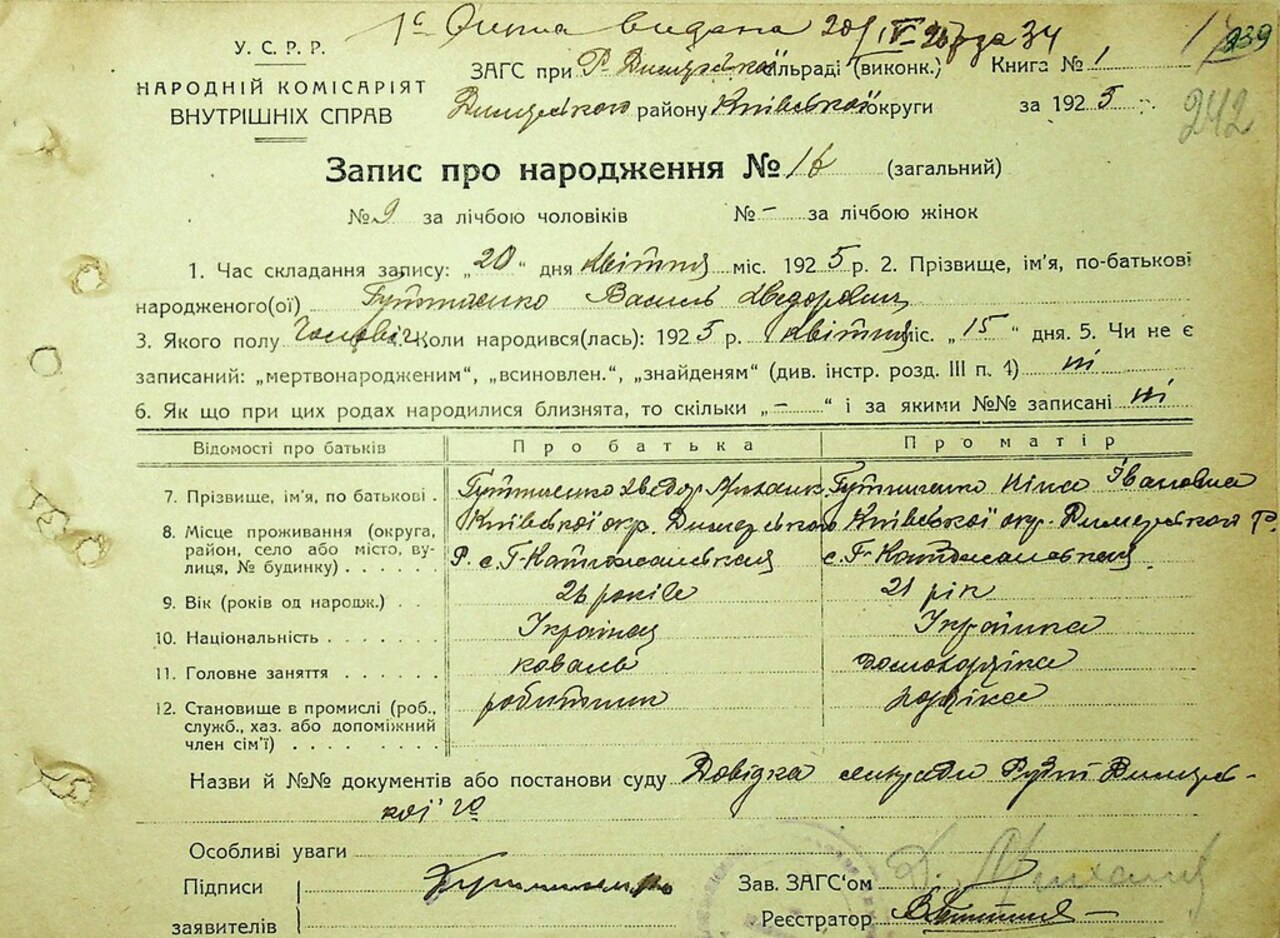 1<sup>с</sup> видана 20/IV за 34
У. С. Р. Р.
НАРОДНІЙ КОМІСАРІЯТ
ВНУТРІШНІХ СПРАВ
ЗАГС при Р. Димерської сільраді (виконк.) Книга № 1
Димерського району Київської округи за 1925 р.
239
242
Запис про народження № 16 (загальний)
№ 9 за лічбою чоловіків № – за лічбою жінок
1. Час складання запису: „20“ дня квітня міс. 1925 р. 2. Прізвище, ім'я, по-батькові
народженого(ої) Василь Хведорович
3. Якого полу 4. Коли народився(лась): 1925 р. квітня міс. „15“ дня. 5. Чи не є
записаний: „мертвонародженим“, „всиновлен.“, „знайденям“ (див. інстр. розд. III п. 4) ні
6. Як що при цих родах народилися близнята, то скільки „–“ і за якими №№ записані ні
Відомості про батьків Про батька Про матір
7. Прізвище, ім'я, по батькові . Хведор Ніна Івановна
8. Місце проживання (округа, Київської окр. Димерського Київської окр. Димерського Р.
район, село або місто, ву-
лиця, № будинку) . . . . . Р. с. Г-Катюжанськая с. Г-Катюжанськая
9. Вік (років од народж.) . . 26 років 21 рік
10. Національність . . . . . . Українка
11. Головне заняття . . . . . . коваль
12. Становище в промислі (роб.,
служб., хаз. або допоміжний
член сім'ї) . . . . . . . . робитник
Назви й №№ документів або постанови суду Довідка сільради Димерсь-
кої
Особливі уваги
Підписи
заявителів
Зав. ЗАГС'ом
Реєстратор